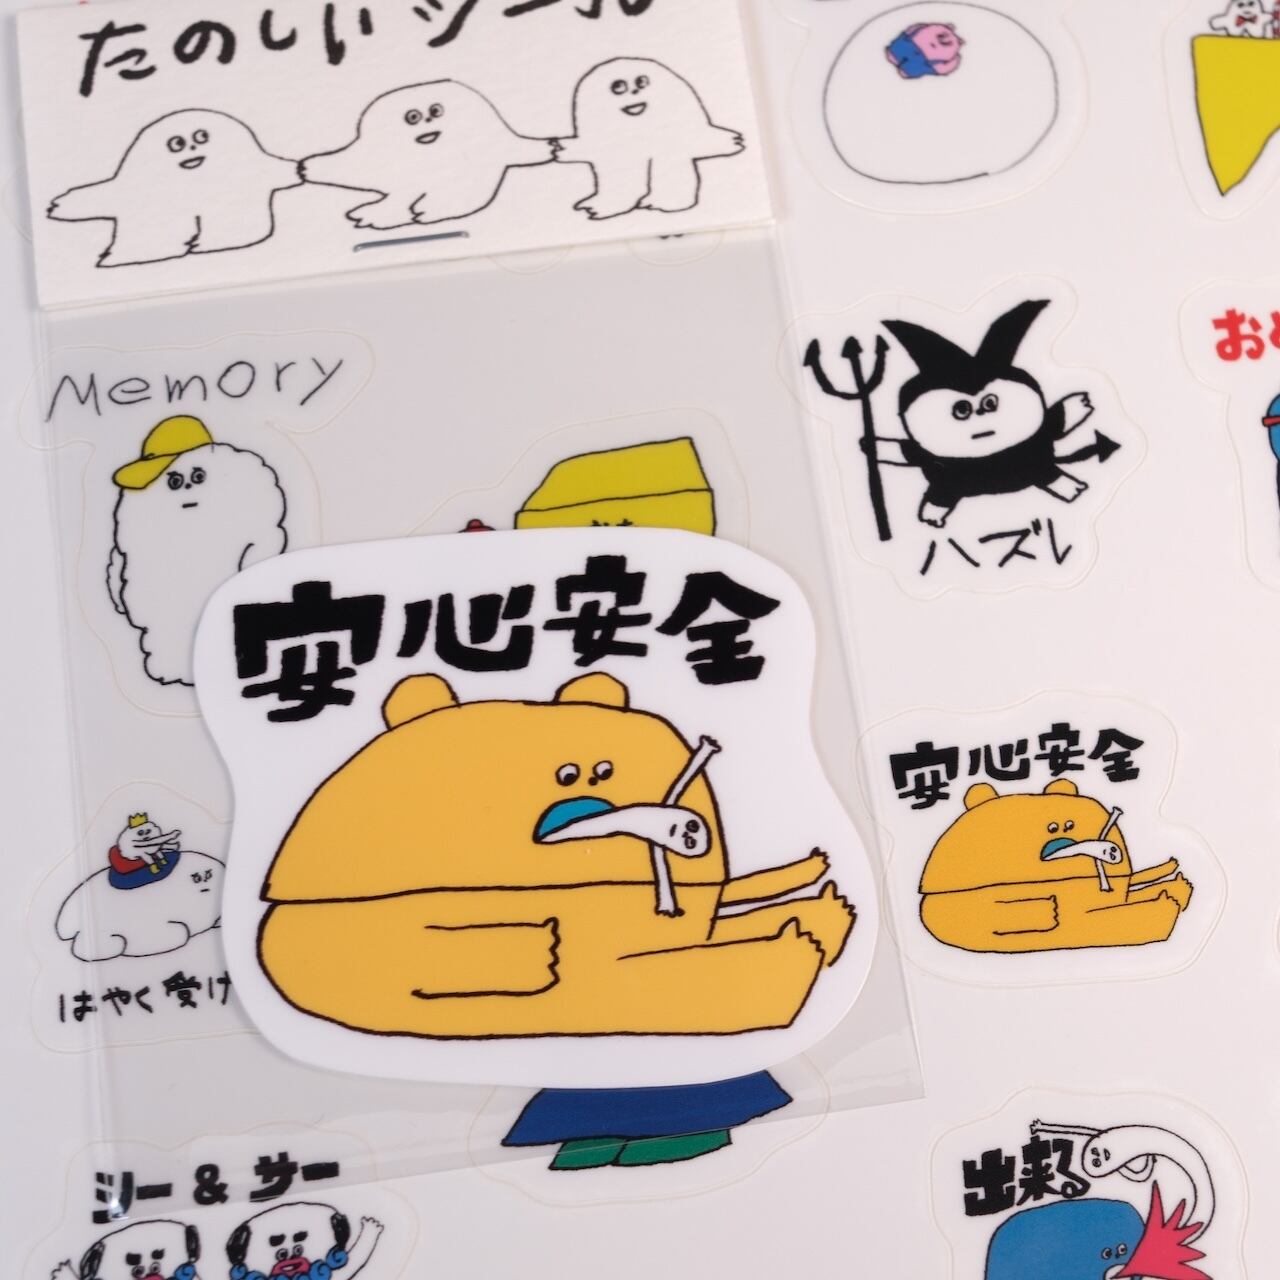 たのしいシール
Memory
ハズレ
安心安全
安心安全
はやく受け
シー&サー
出来る